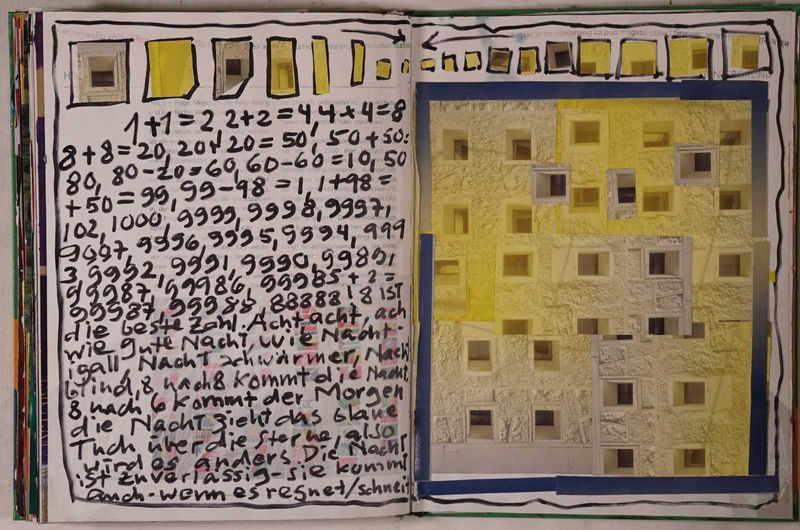 1+1=2 2+2=4,4+4=8
8+8=20,20+20=50,50+50=
80,80-20=60,60-60=10,50
+50=99,99-98=1,1+98=
102,1000,9999,9998,9997,
9997,9996,9995,9994,999
3,9992,9991,9990,9989,
99987,99986,99985+2=
99987,99988 88888!8 IST
die beste Zahl. Acht acht, ach
wie gute Nacht, wie Nacht-
igall, Nacht schwärmer, Nach
twind, 8 nach 8 kommt die Nacht
8 nach 6 kommt der Morgen
die Nacht zieht das blaue
Tuch über die Sterne, also
wird es anders. Die Nacht
ist zuverlässig-sie kommt
auch-wenn es regnet/schneit